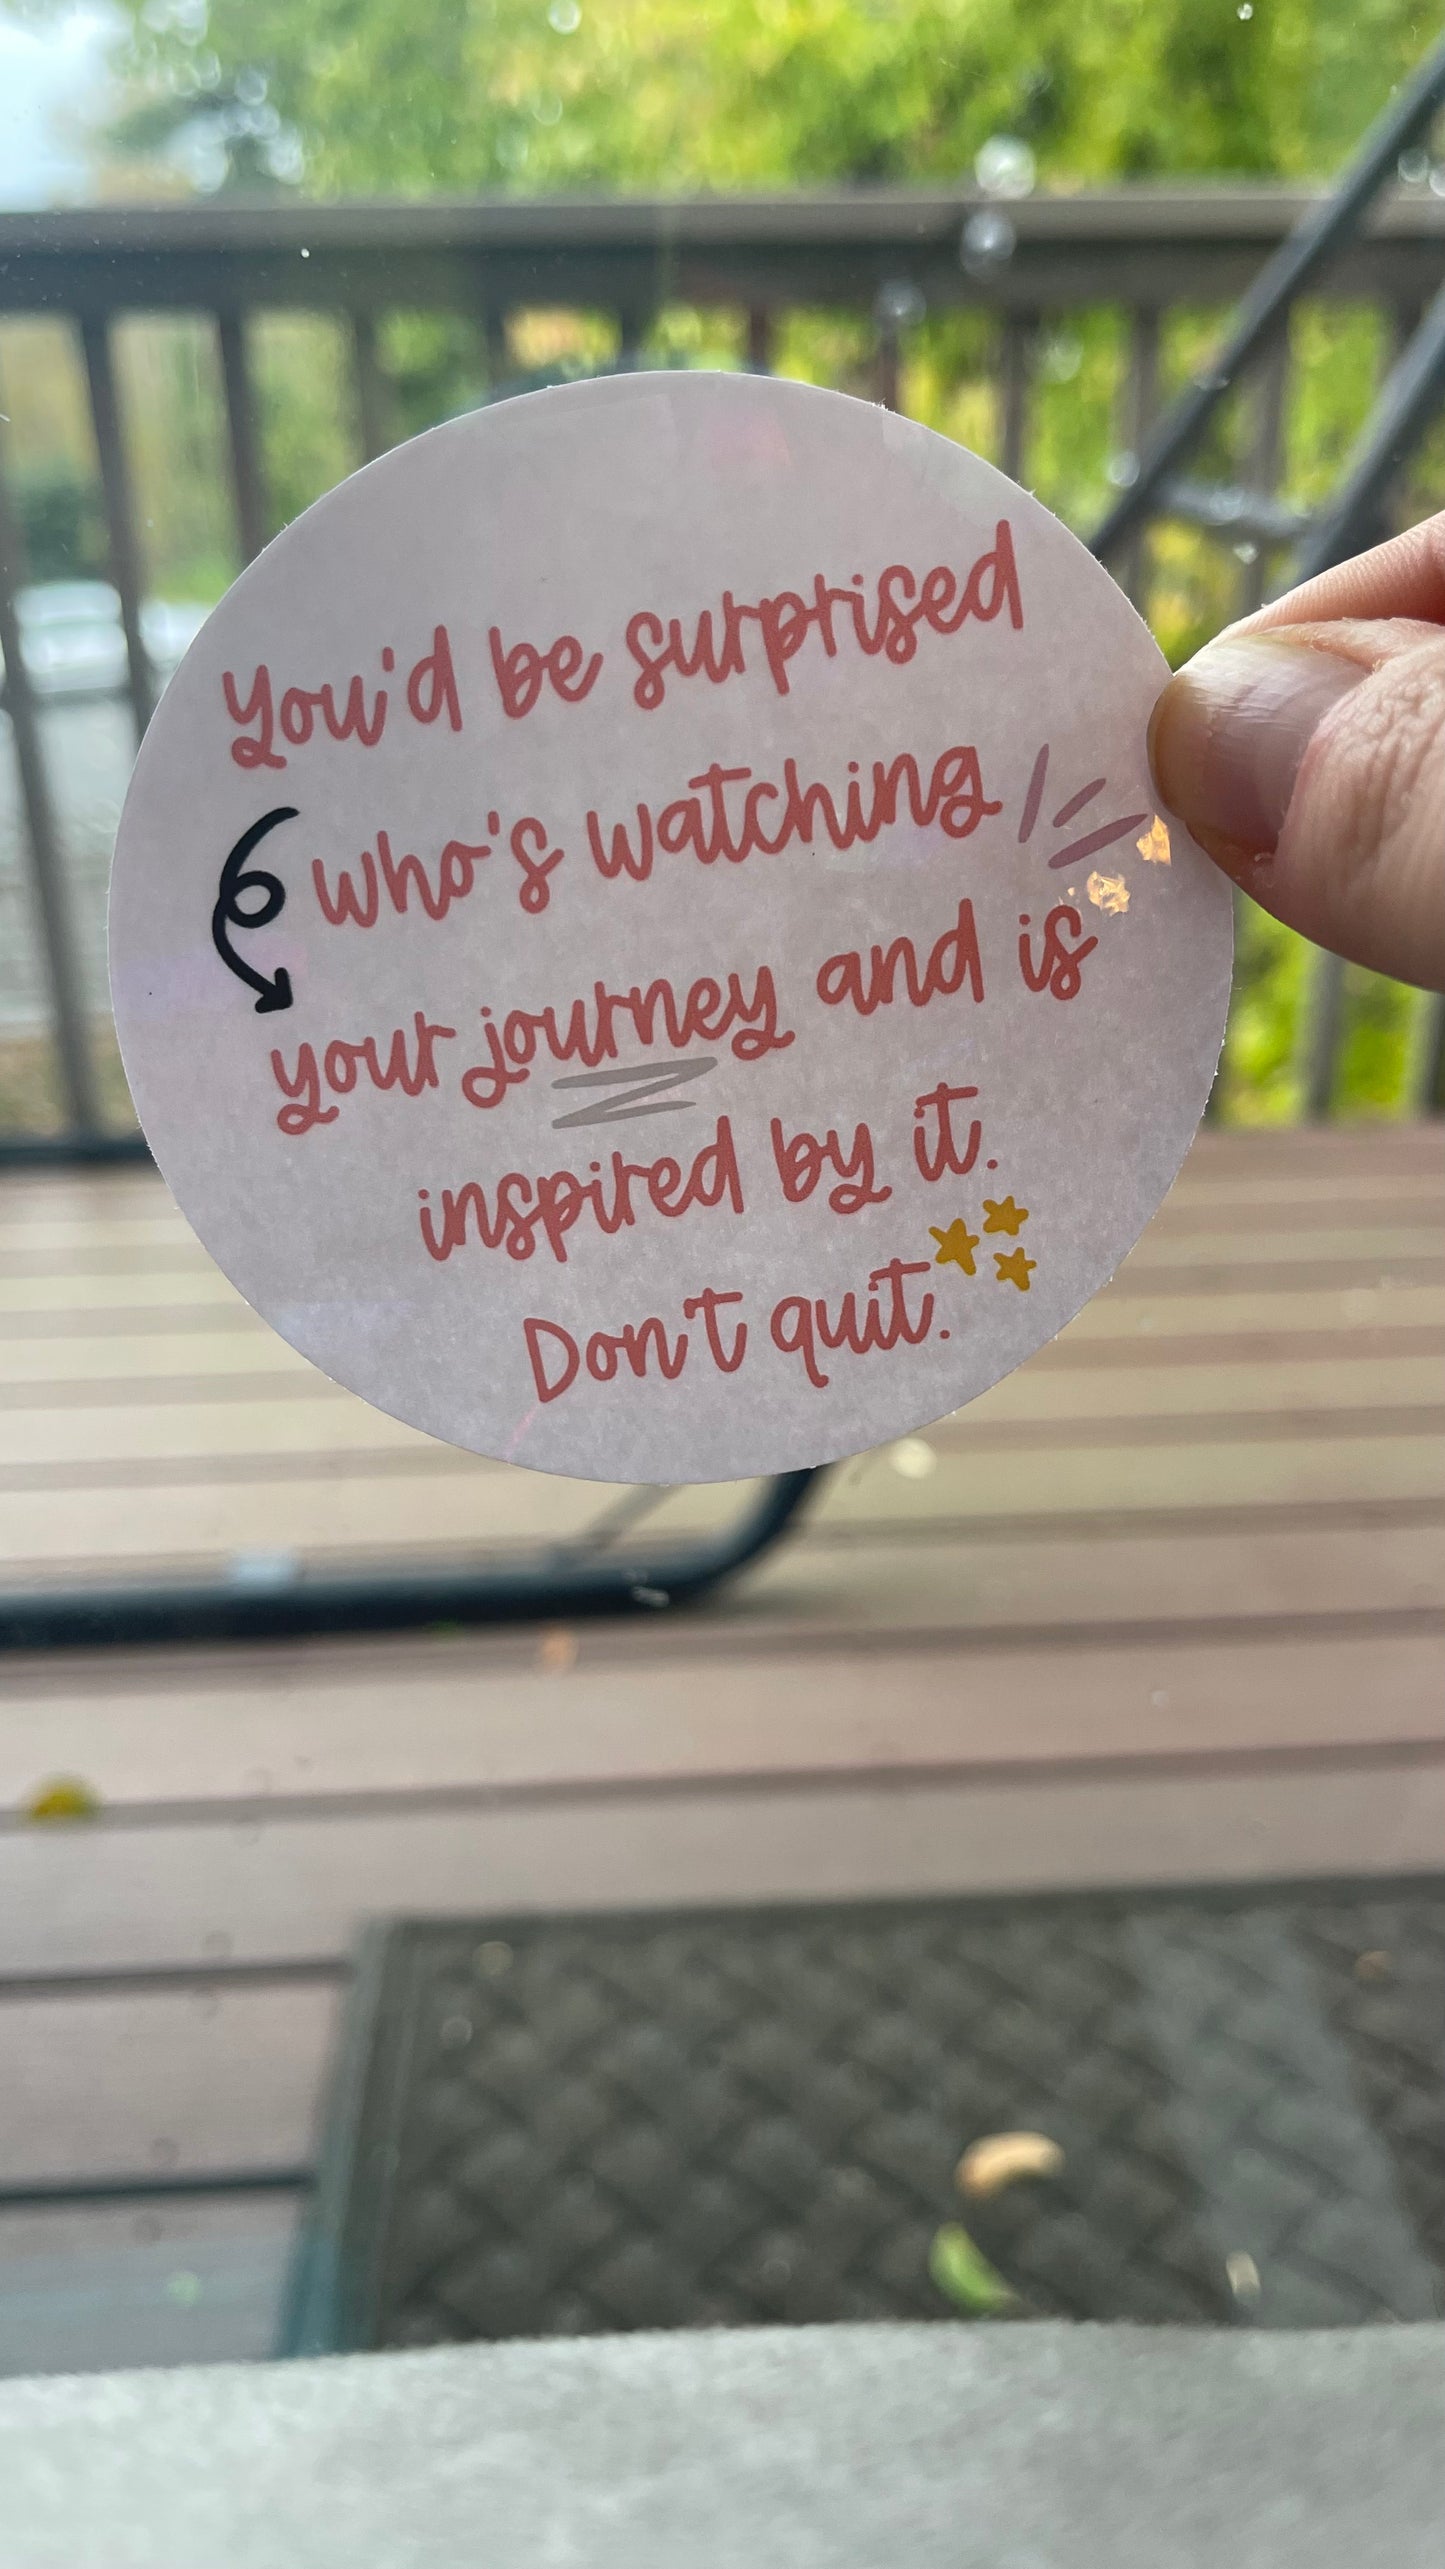 You'd be surprised
who's watching
your journey and is
inspired by it.
Don't quit.